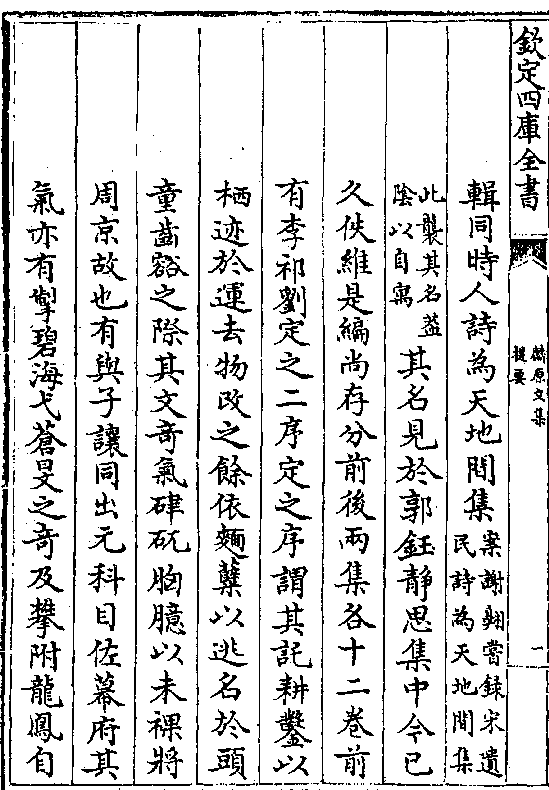 欽定四庫全書
麟原文集
提要
一
輯同時人詩為天地閒集案謝翺嘗録宋遺民詩為天地閒集
此襲其名葢陰以自寓其名見於郭鈺靜思集中今已
久佚維是編尚存分前後兩集各十二卷前
有李祁劉定之二序定之序謂其記耕鑿以
栖迹於運去物改之餘依麯蘖以逃名於頭
童齒豁之際其文竒氣硉矹胸臆以未裸將
周京故也有與子讓同出元科目佐幕府其
氣亦有掣碧海弋蒼旻之竒及攀附龍鳳自